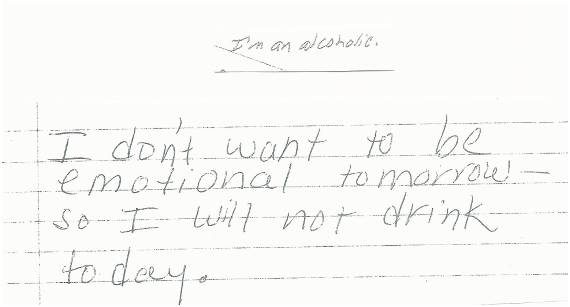 I'm an alcoholic.
I don't want to be
emotional tomorrow—
so I will not drink
today.